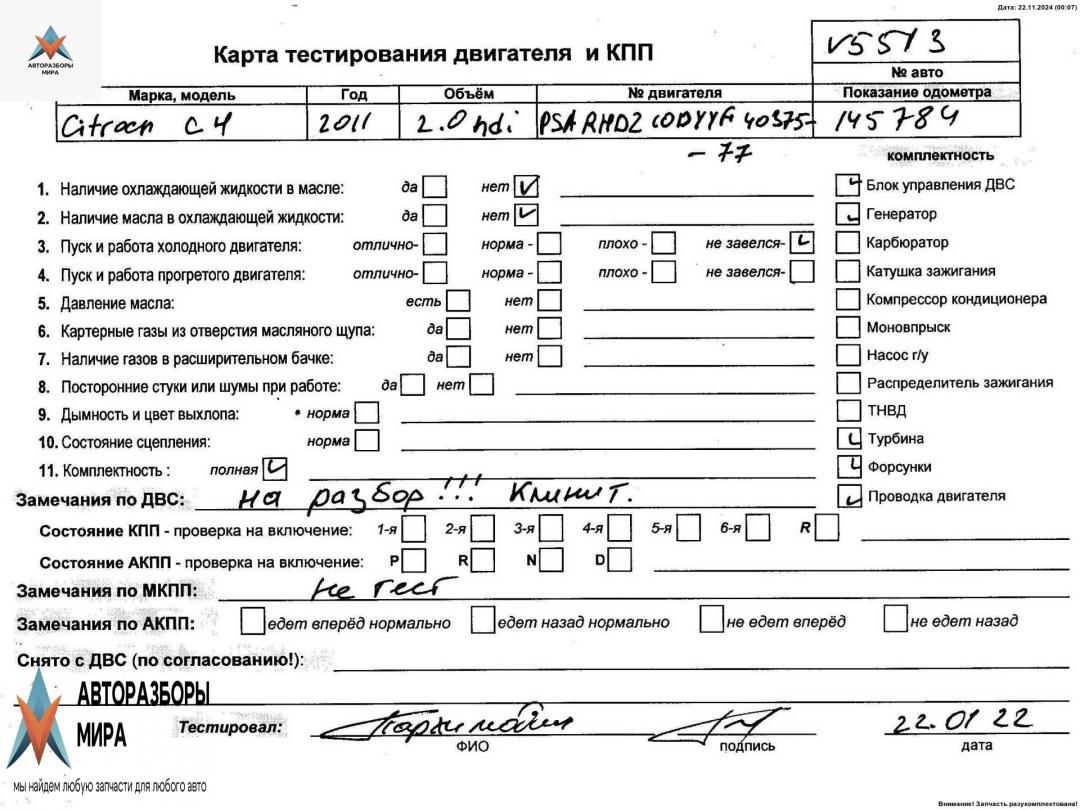 Дата: 22.11.2024 (00:07)
АВТОРАЗБОРЫ
МИРА
Карта тестирования двигателя и КПП
V5513
№ авто
Марка, модель Год Объём № двигателя Показание одометра
Citroen C4 2011 2.0 hdi PSA RHDZ 10DYYF 40375- 145784
- 77
комплектность
1. Наличие охлаждающей жидкости в масле: да нет
Блок управления ДВС
2. Наличие масла в охлаждающей жидкости: да нет
Генератор
3. Пуск и работа холодного двигателя: отлично- норма - плохо - не завелся-
Карбюратор
4. Пуск и работа прогретого двигателя: отлично- норма - плохо - не завелся-
Катушка зажигания
5. Давление масла: есть нет
Компрессор кондиционера
6. Картерные газы из отверстия масляного щупа: да нет
Моновпрыск
7. Наличие газов в расширительном бачке: да нет
Насос г/у
8. Посторонние стуки или шумы при работе: да нет
Распределитель зажигания
9. Дымность и цвет выхлопа: норма
ТНВД
10. Состояние сцепления: норма
Турбина
11. Комплектность : полная
Форсунки
Замечания по ДВС: на разбор!!! Клинит.
Проводка двигателя
Состояние КПП - проверка на включение: 1-я 2-я 3-я 4-я 5-я 6-я R
Состояние АКПП - проверка на включение: P R N D
Замечания по МКПП: не тест
Замечания по АКПП: едет вперёд нормально едет назад нормально не едет вперёд не едет назад
Снято с ДВС (по согласованию!):
АВТОРАЗБОРЫ
МИРА
мы найдем любую запчасти для любого авто
Тестировал: 22.01 22
ФИО подпись дата
Внимание! Запчасть разукомплектована!